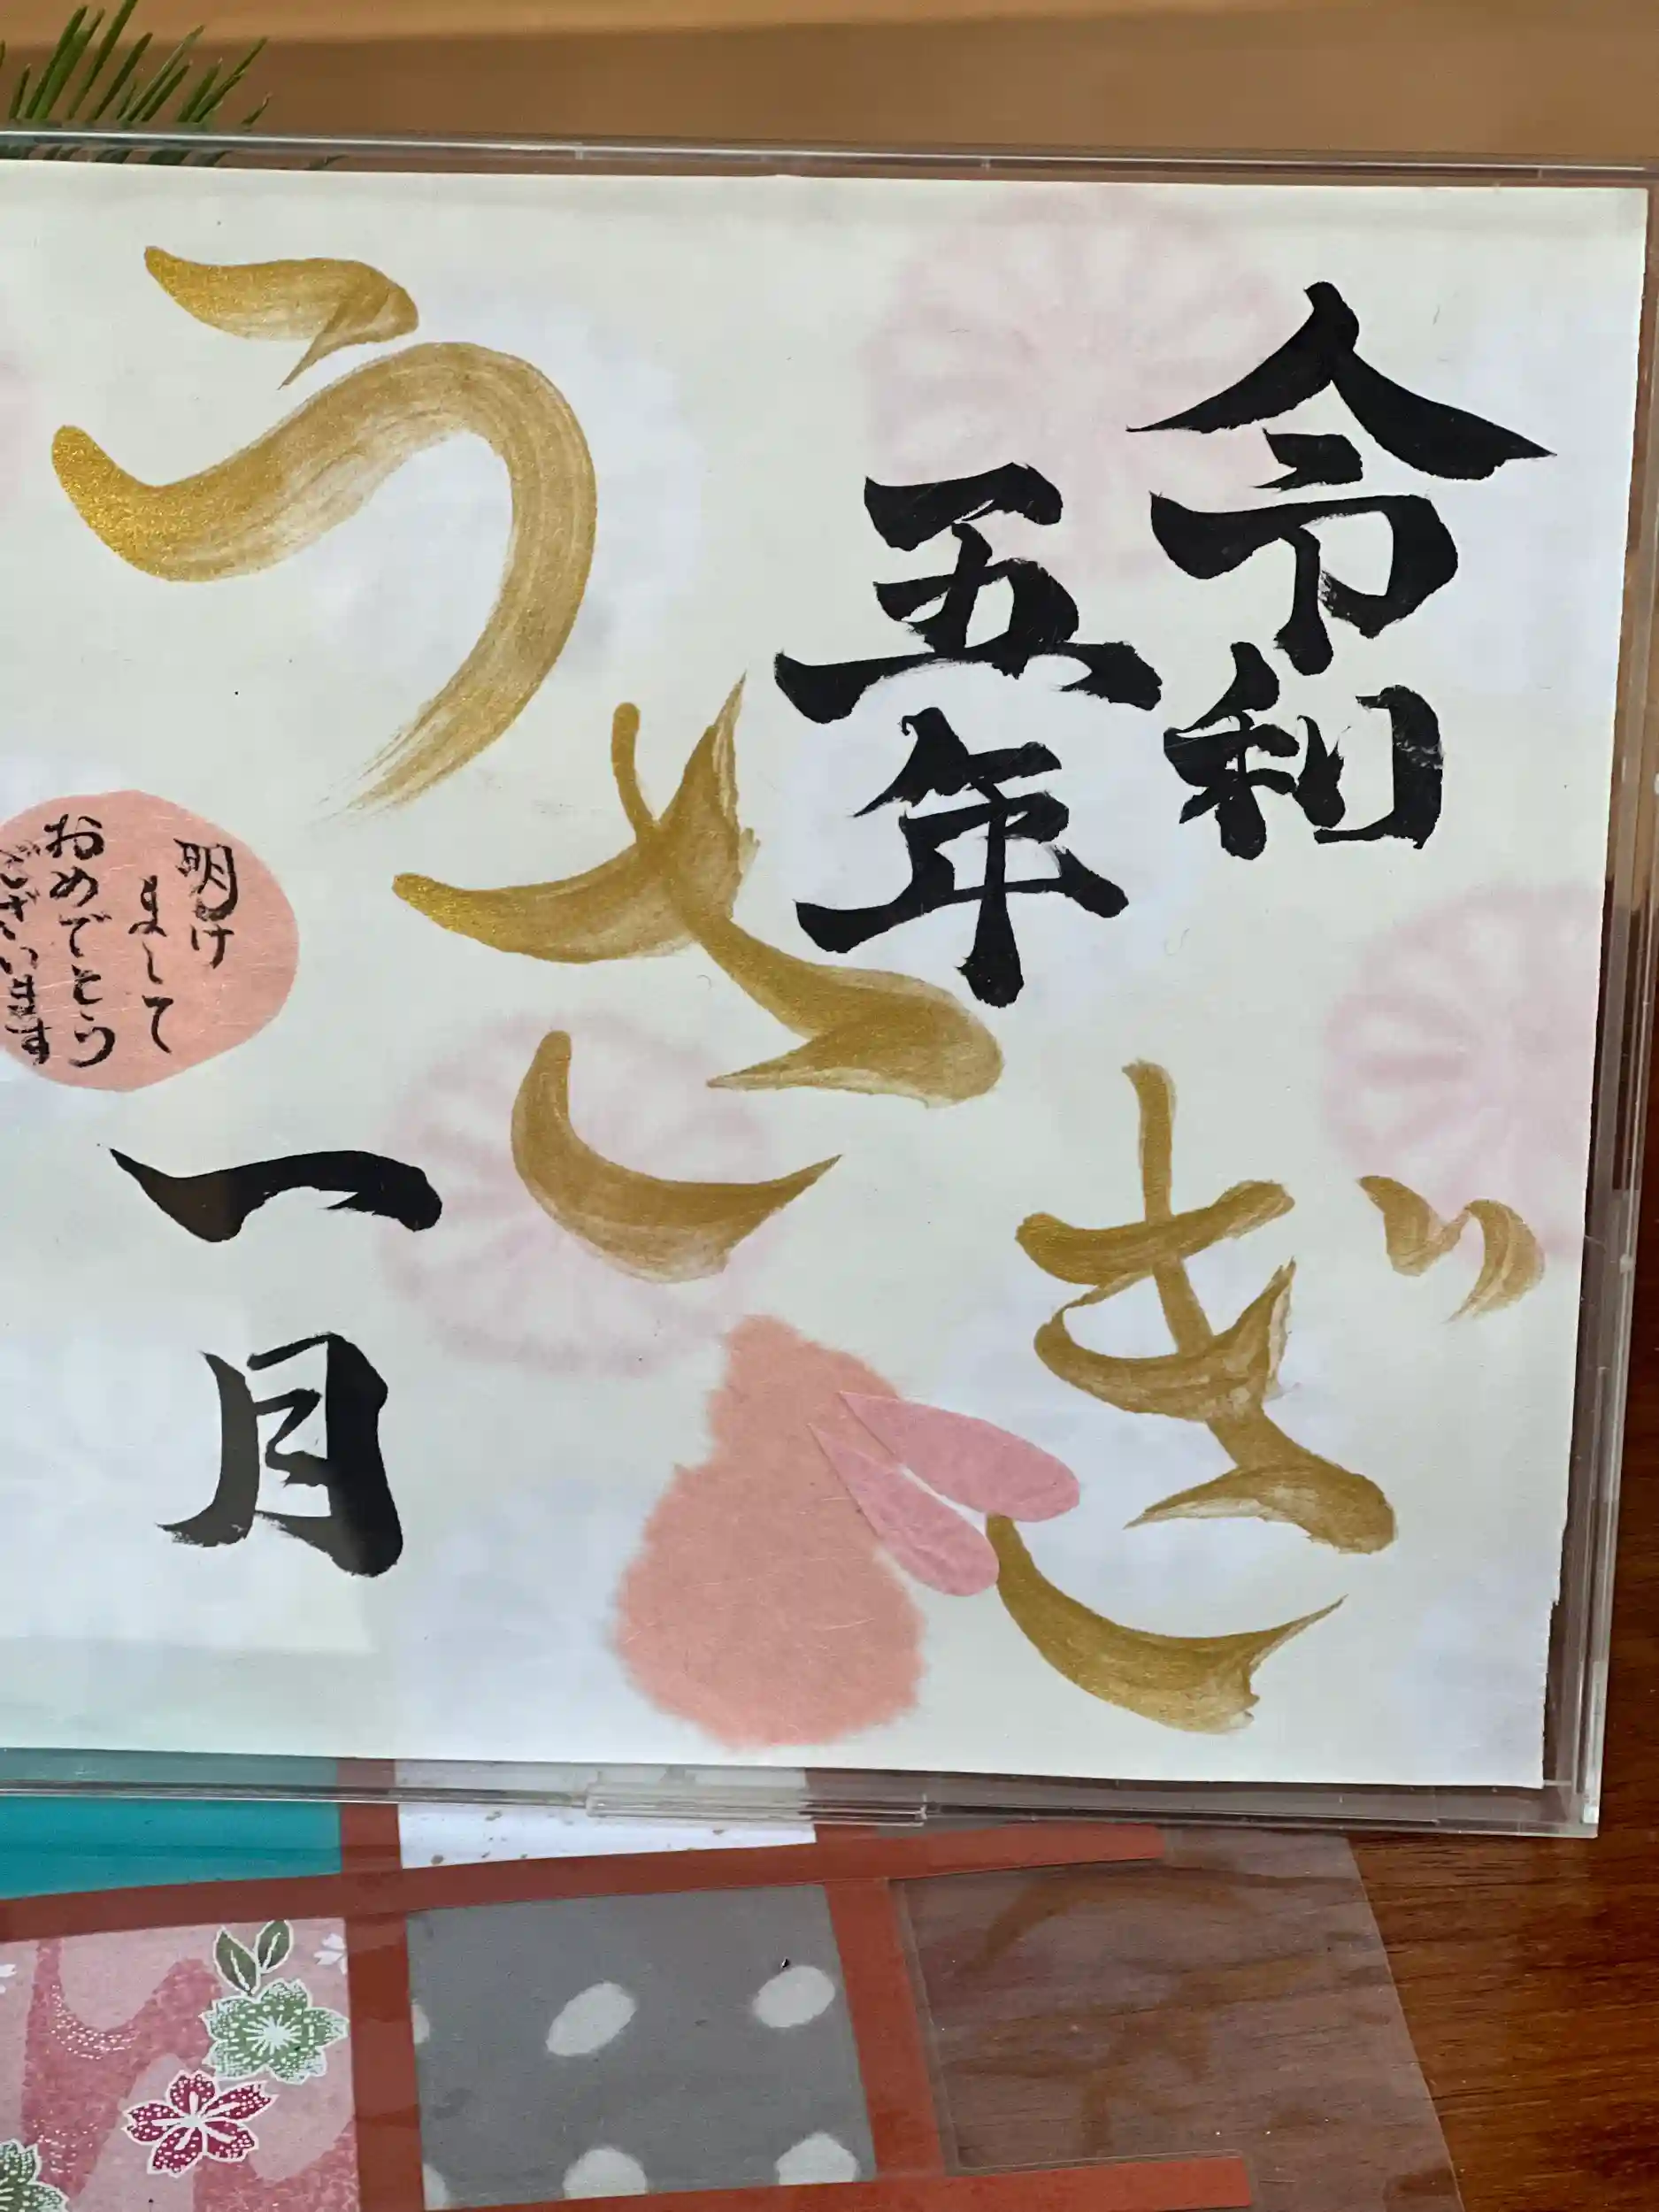 令和
五年
うさぎ
明け
まして
おめでとう
ございます
一月